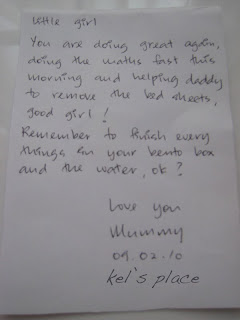 little girl
You are doing great again,
doing the maths fast this
morning and helping daddy
to remove the bed sheets,
good girl!
Remember to finish every
things in your bento box
and the water, ok?
Love you
Mummy
09.02.10
kel's place